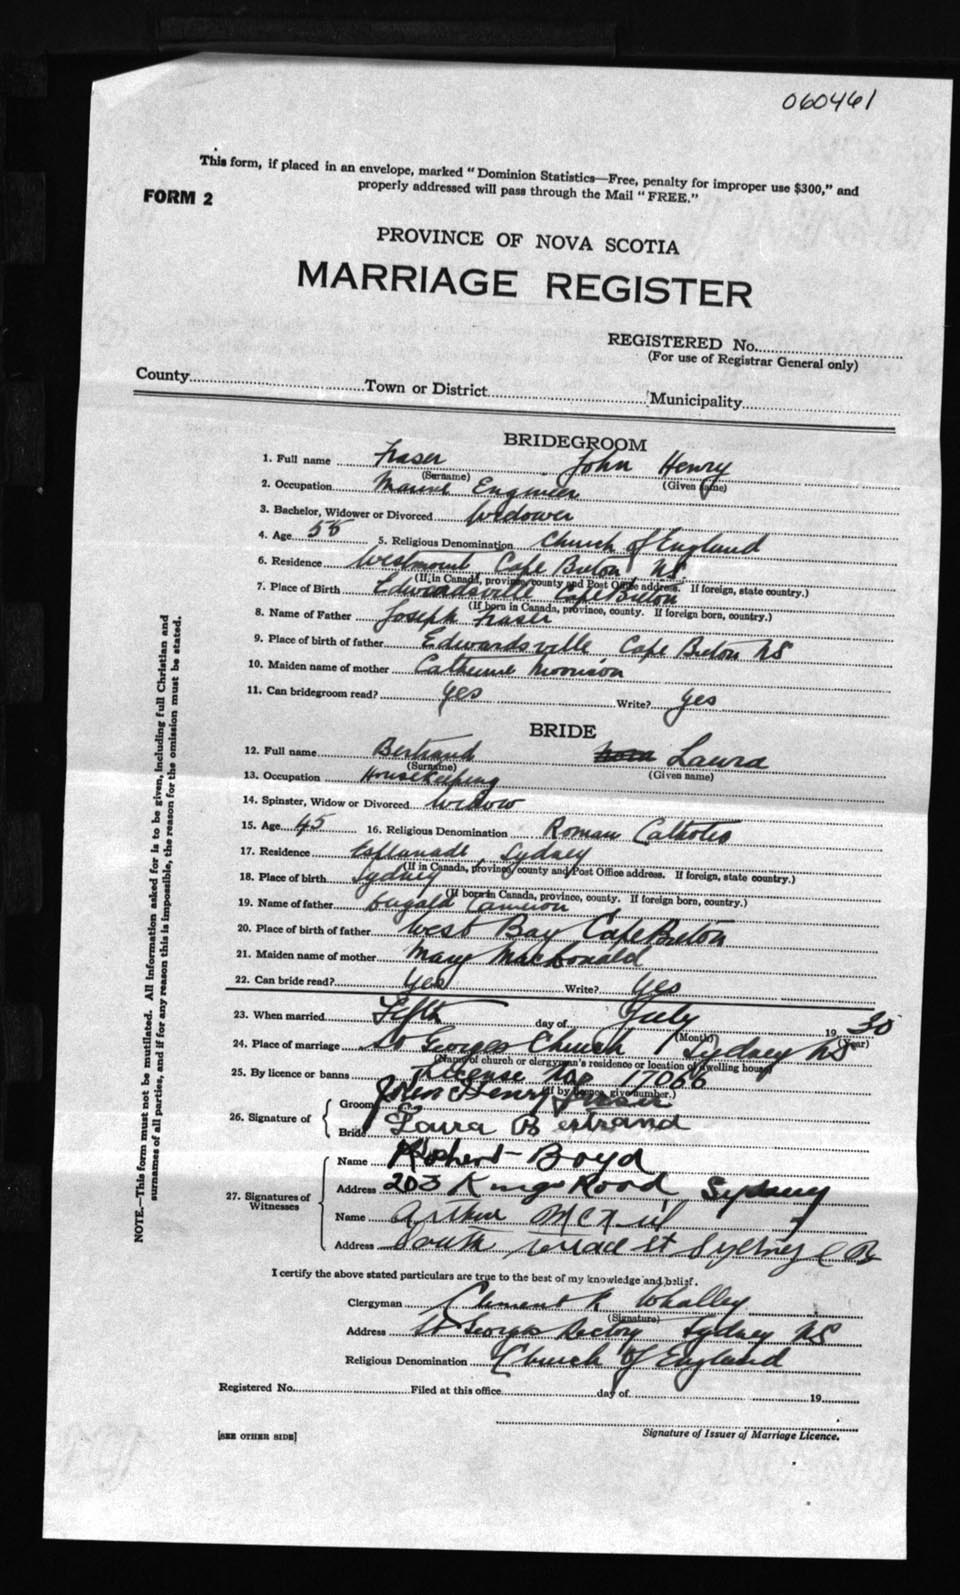 060461
This form, if placed in an envelope, marked "Dominion Statistics—Free, penalty for improper use $300," and
properly addressed will pass through the Mail "FREE."
FORM 2
PROVINCE OF NOVA SCOTIA
MARRIAGE REGISTER
REGISTERED No.
(For use of Registrar General only)
County Town or District Municipality
BRIDEGROOM
1. Full name Fraser John Henry
(Surname) (Given name)
2. Occupation Marine Engineer
3. Bachelor, Widower or Divorced Widower
4. Age 58 5. Religious Denomination Church of England
6. Residence Westmount Cape Breton NS
(If in Canada, province, county and Post Office address. If foreign, state country.)
7. Place of Birth Edwardsville Cape Breton
(If born in Canada, province, county. If foreign born, country.)
8. Name of Father Joseph Fraser
9. Place of birth of father Edwardsville Cape Breton NS
10. Maiden name of mother Catherine Morrison
11. Can bridegroom read? yes Write? yes
BRIDE
12. Full name Bertrand Laura
(Surname) (Given name)
13. Occupation Housekeeping
14. Spinster, Widow or Divorced Widow
15. Age 45 16. Religious Denomination Roman Catholic
17. Residence Esplanade, Sydney
(If in Canada, province, county and Post Office address. If foreign, state country.)
18. Place of birth Sydney
(If born in Canada, province, county. If foreign born, country.)
19. Name of father Dugald Cameron
20. Place of birth of father West Bay Cape Breton
21. Maiden name of mother Mary MacDonald
22. Can bride read? Yes Write? yes
23. When married Fifth day of July 19 30
(Month) (Year)
24. Place of marriage St Georges Church Sydney NS
(Name of church or clergyman's residence or location of dwelling house)
25. By licence or banns License No 17066
(If by licence, give number.)
26. Signature of Groom John Henry Fraser
Bride Laura Bertrand
27. Signatures of Witnesses
Name Robert Boyd
Address 203 Kings Road, Sydney
Name Arthur McNeil
Address South St Sydney C B
I certify the above stated particulars are true to the best of my knowledge and belief.
Clergyman Clement R Whalley
(Signature)
Address St Georges Rectory Sydney NS
Religious Denomination Church of England
Registered No. Filed at this office day of 19
Signature of Issuer of Marriage Licence.
[SEE OTHER SIDE]
NOTE.—This form must not be mutilated. All information asked for is to be given, including full Christian and
surnames of all parties, and if for any reason this is impossible, the reason for the omission must be stated.